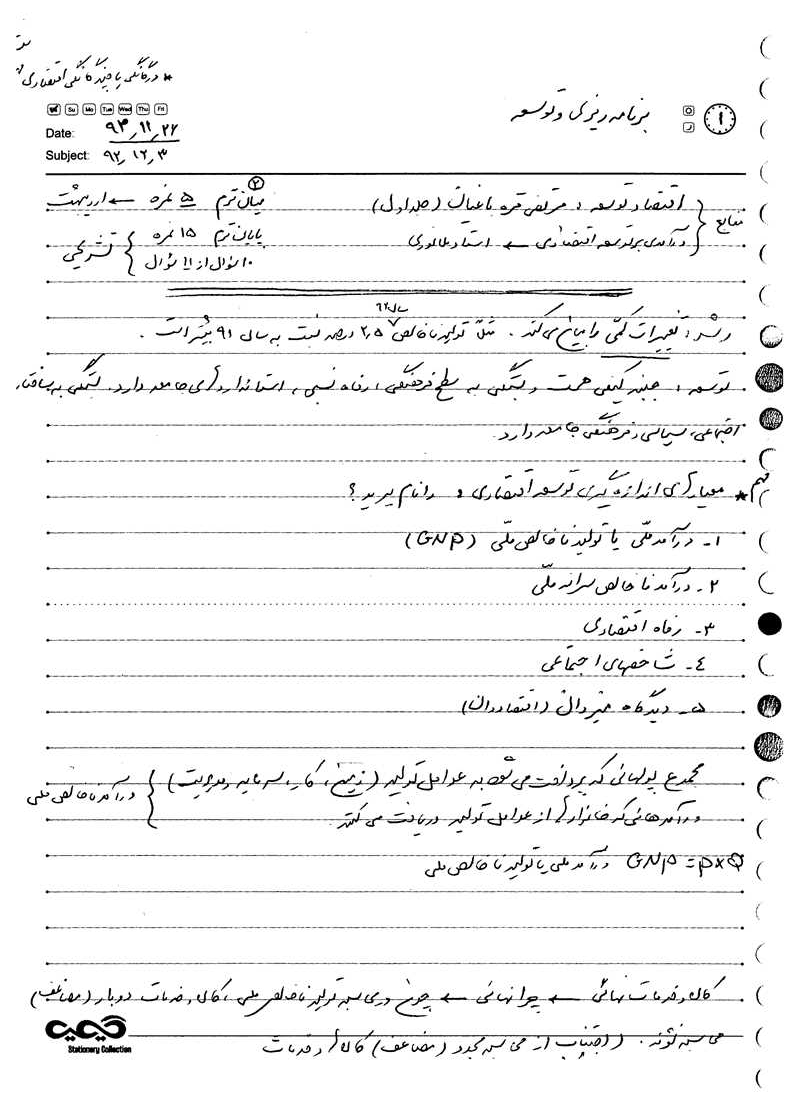 * دوگانگی یا چندگانگی اقتصادی
Su Mo Tue Wed Thu Fri
Date: ۹۳,۱۱,۲۶
Subject: ۹۲,۱۲,۳
برنامه ریزی و توسعه
۱
منابع { اقتصاد توسعه : مرتضی قره باغیان (جلد اول)
درآمدی بر توسعه اقتصادی ← استاد طالوری
میان ترم ۵ نمره ← اردیبهشت ۲
پایان ترم ۱۵ نمره
۱۰ سوال از ۱۱ سوال } تشریحی
رشد : تغییرات کمّی را بیان می کند . مثلاً تولید ناخالص سال ۹۲ ۲,۵ درصد نسبت به سال ۹۱ بیشتر است .
توسعه : جنبه کیفی هست و بستگی به سطح فرهنگی ، رفاه نسبی ، استانداردهای جامعه دارد. بستگی به ساختار
اجتماعی، سیاسی و فرهنگی جامعه دارد.
مهم * معیارهای اندازه گیری توسعه اقتصادی : را نام ببرید ؟
۱- درآمد ملّی یا تولید ناخالص ملّی (GNP)
۲- درآمد ناخالص سرانه ملّی
۳- رفاه اقتصادی
۴- شاخصهای اجتماعی
۵- دیدگاه میردال (اقتصاددان)
مجموع پولهائی که پرداخت می شود به عوامل تولید (زمین، کار، سرمایه و مدیریت)
و درآمدهائی که خانوارها از عوامل تولید دریافت می کنند. } درآمد ناخالص ملی
GNP = P×Q درآمد ملی یا تولید ناخالص ملی
کالا و خدمات نهائی ← چرا نهائی ← چون در محاسبه تولید ناخالص ملی ، کالا و خدمات دوبار (مضاعف)
محاسبه نشوند . (اجتناب از محاسبه مجدد (مضاعف) کالاها و خدمات
Stationery Collection